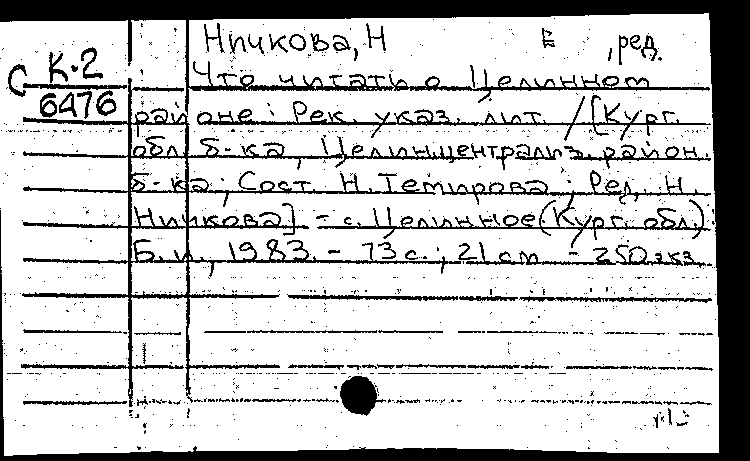 Ничкова, Н , ред.
С К-2
6476
Что читать о Целинном
районе : Рек. указ. лит. / [Кург.
обл. б-ка, Целин.централиз. район.
б-ка ; Сост. Н. Темирова ; Ред. Н.
Ничкова] - с. Целинное (Кург. обл.) :
Б.и., 1983. - 73 с. ; 21 см - 250 экз.